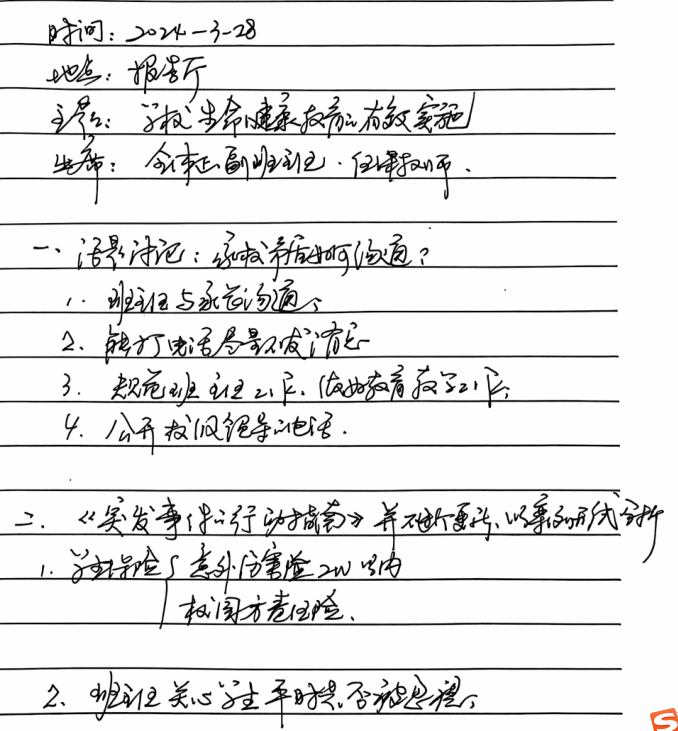 时间：2024-3-28
地点：报告厅
主题：学校生命健康教育的有效实施
出席：全体正副班主任·任课教师.
一、话题讨论：家校矛盾如何沟通？
1. 班主任与家长沟通。
2. 能打电话尽量不发消息
3. 规范班主任工作、做好教育教学工作。
4. 公开校级领导的电话.
二.《突发事件的行动指南》并不断更新、以案例形式分析
1. 学生保险 意外伤害险 2W以内
校园方责任险.
2. 班主任关心学生平时